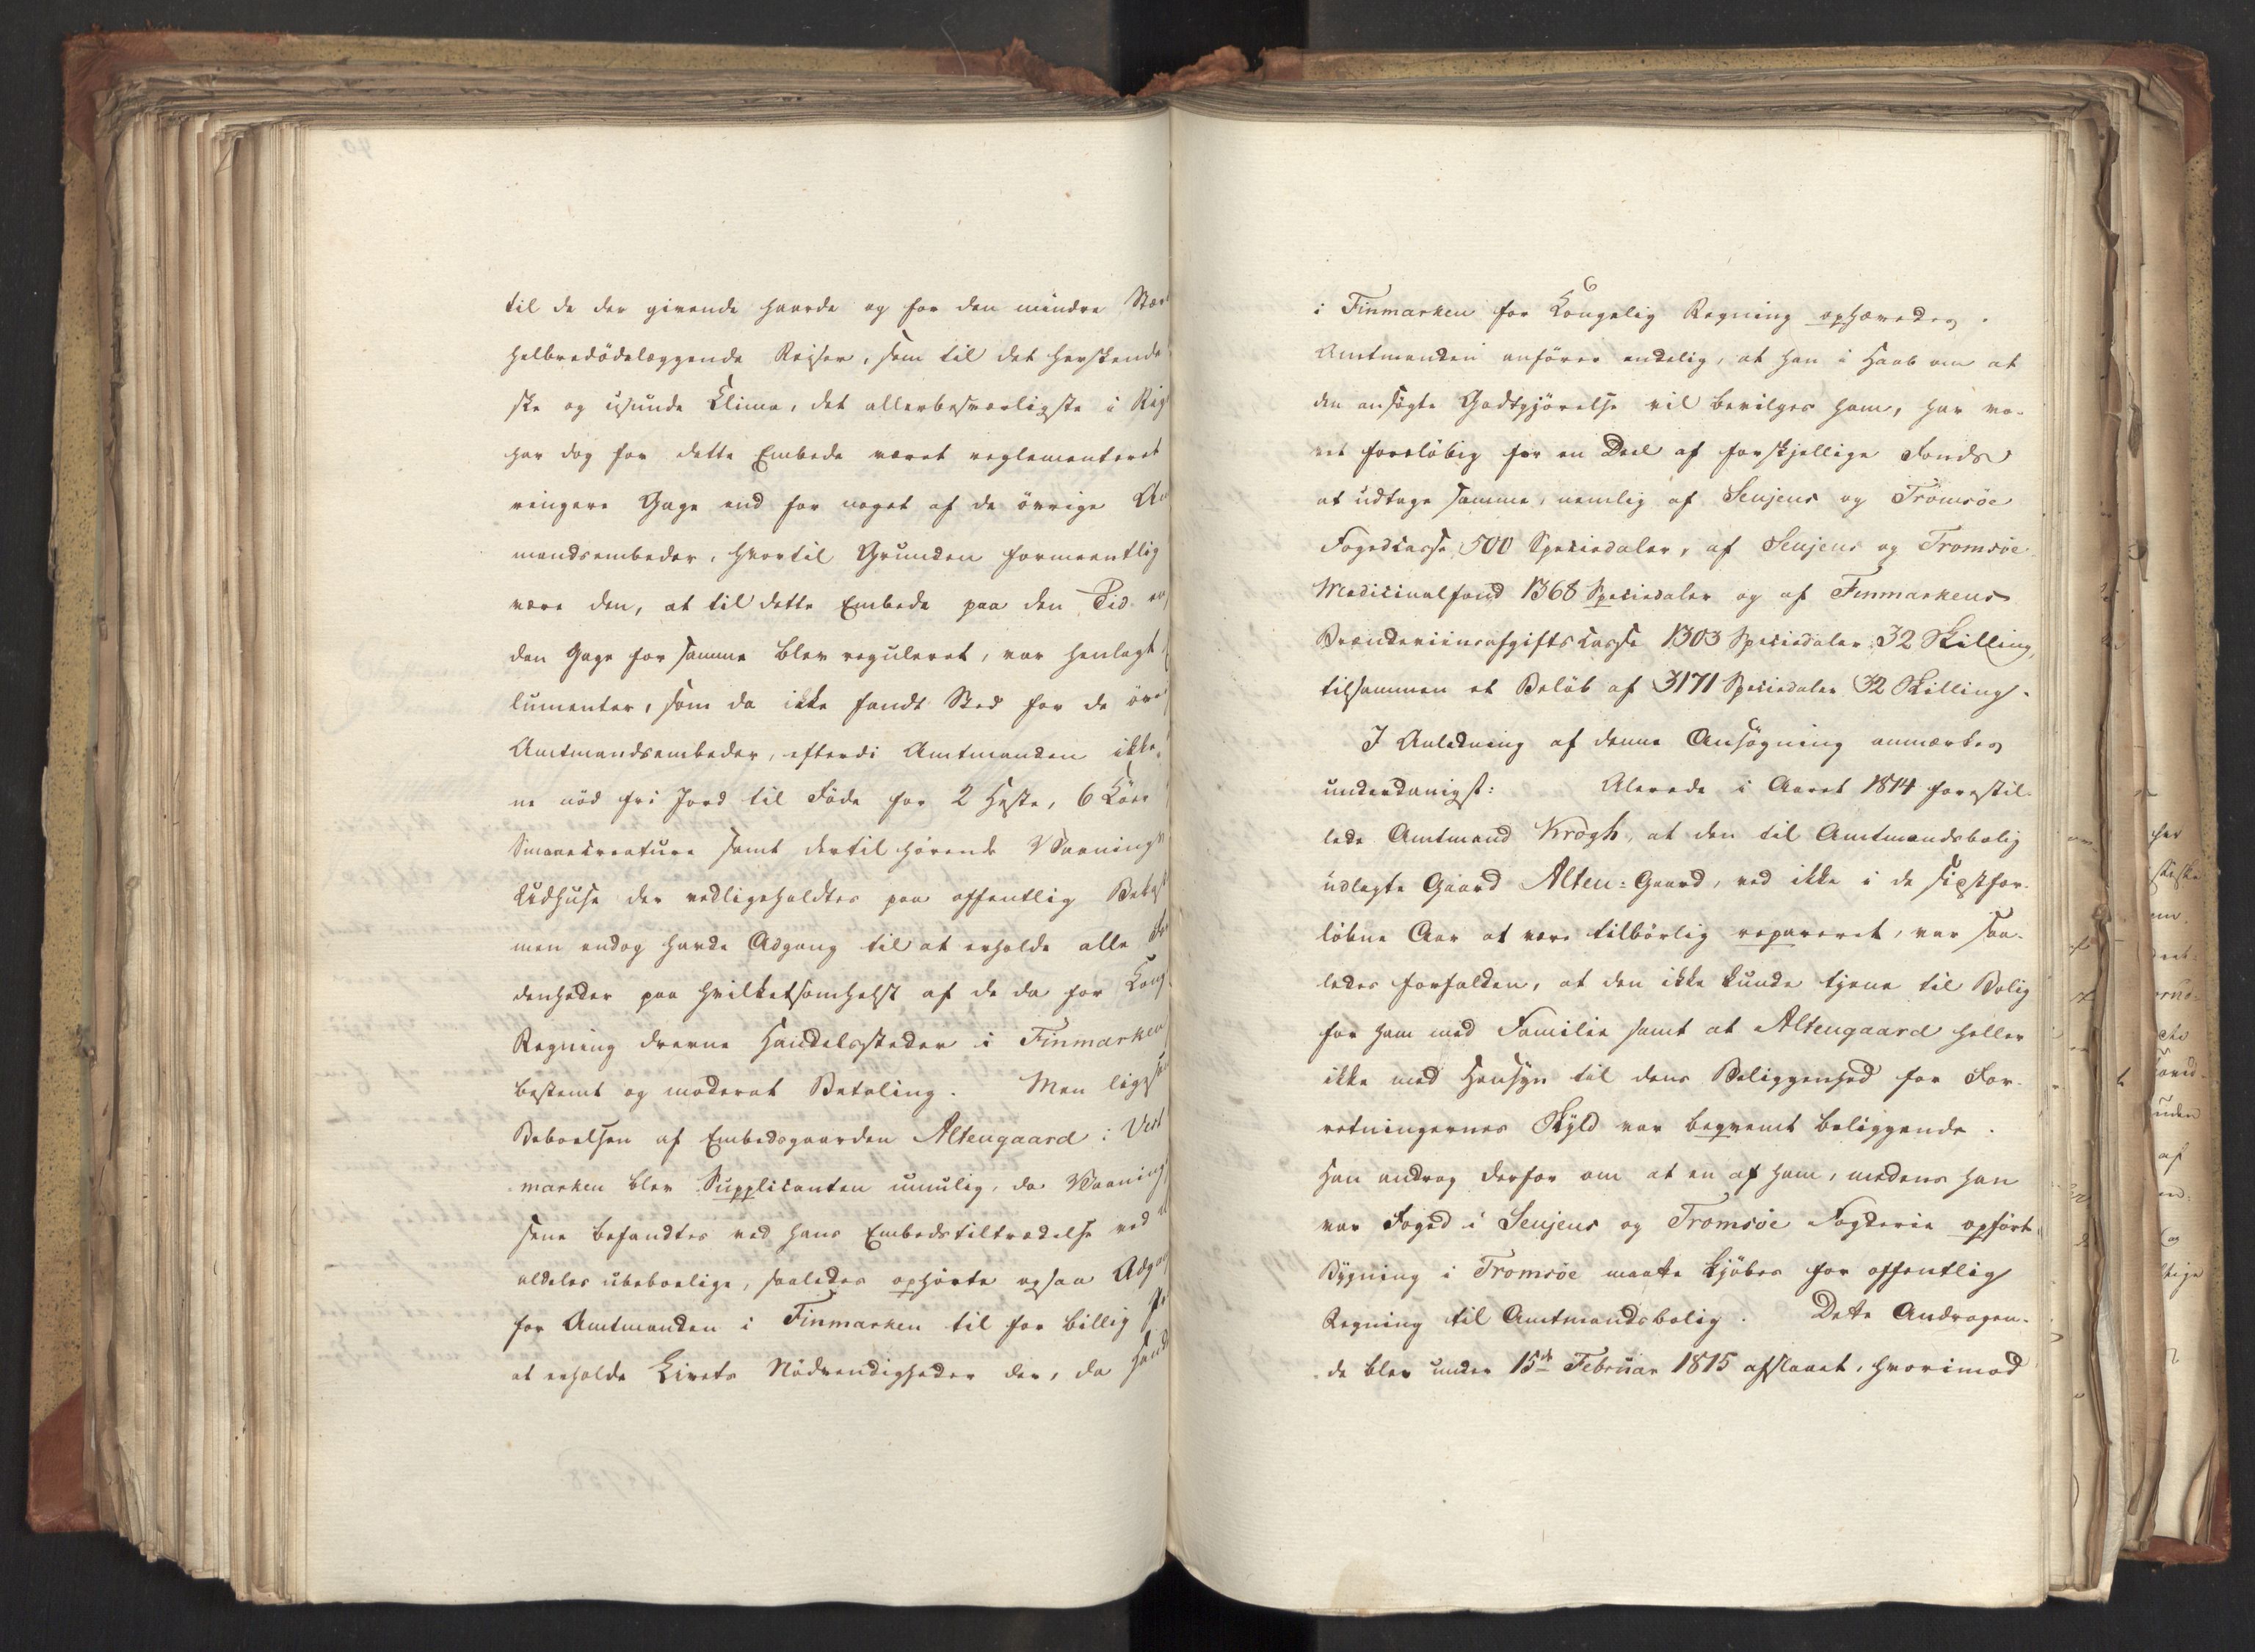 til de der givende haarde og for den mindre Stær
helbredödelæggende Reiser, som til det herskende
ske og usunde Clima, det allerbesværligste i Rig
har dog for dette Embede været reglementeret
ringere Gage end for noget af de övrige Am
mandsembeder, hvortil Grunden formeentlig
være den, at til dette Embede paa den Tid
den Gage for samme blev reguleret, var henlagt
lumenter, som da ikke fandt Sted for de övr
Amtmandsembeder, efterdi Amtmanden ikke
ne nöd fri Jord til Föde for 2 Heste, 6 Köer
Smaaecreature samt dertil hörende Vaanings
Udhuse der vedligeholdtes paa offentlig Bekost
men endog havde Adgang til at erholde alle
denheder paa hvilketsomhelst af de da for Kong
Regning drevne Handelssteder i Finmarken
bestemt og moderat Betaling. Men ligesa
Beboelsen af Embedsgaarden Altengaard i Vest
marken blev Supplicanten umulig, da Vaanings
sene befandtes ved hans Embedstiltrædelse ved
aldeles ubeboelige, saaledes ophörte ogsaa Adgan
for Amtmanden i Finmarken til for billig
at erholde Livets Nödvendigheder der, da Hand
i Finmarken for Kongelig Regning ophævedes.
Amtmanden anförer endelig, at han i Haab om at
den ansögte Godtgjörelse vil bevilges ham, har væ-
ret foreløbig for en Deel af forskjellige Fonds
at udtage samme, nemlig af Senjens og Tromsöe
Fogedcasse 500 Speciedaler, af Senjens og Tromsöe
Medicinalfond 1368 Speciedaler og af Finmarkens
Brændeviinsafgiftscasse 1303 Speciedaler 32 Skilling,
tilsammen et Belöb af 3171 Speciedaler 32 Skilling.
I Anledning af denne Ansögning anmærkes
underdanigst: Alerede i Aaret 1814 forestil-
lede Amtmand Krogh, at den til Amtmandsbolig
udlagte Gaard Alten-Gaard, ved ikke i de sidstfor-
löbne Aar at være tilbörlig repareret, var saa-
ledes forfalden, at den ikke kunde tjene til Bolig
for ham med Familie samt at Altengaard heller
ikke med Hensyn til dens Beliggenhed for For-
retningernes Skyld var beqvemt beliggende.
Han androg derfor om at en af ham, medens han
var Foged i Senjens og Tromsöe Fogderie opfört
Bygning i Tromsöe maatte kjöbes for offentlig
Regning til Amtmandsbolig. Dette Andragen-
de blev under 15de Februar 1815 afslaaet, hvorimod